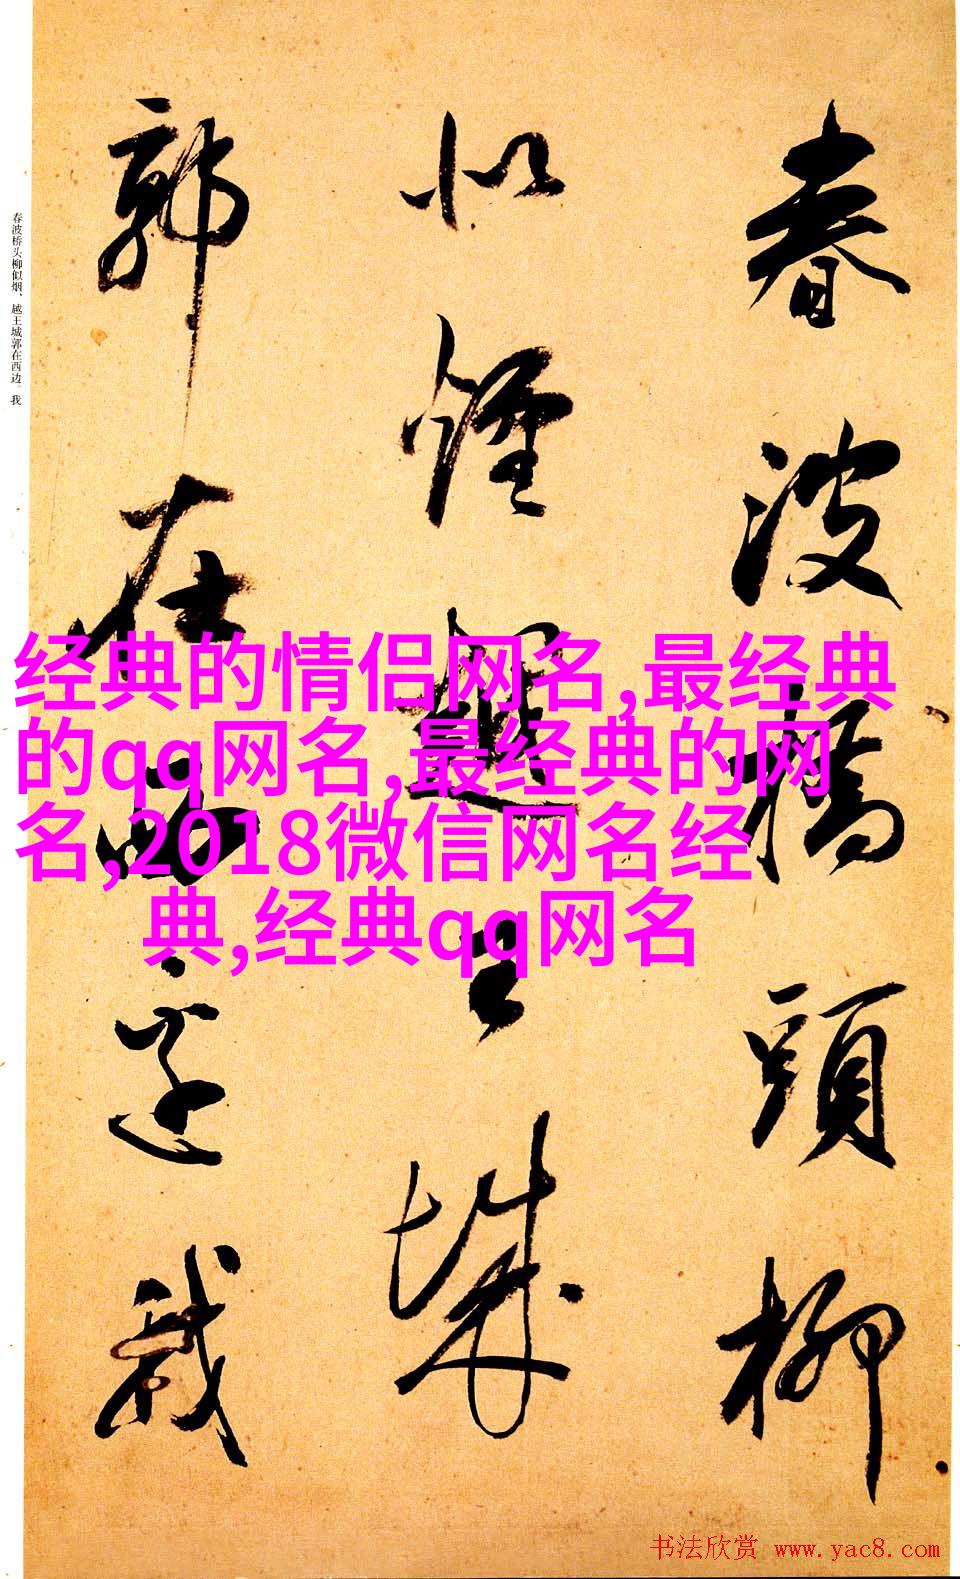 春波橋頭柳
似煙越王城
郭在西邊我
春波桥头柳似烟、越王城郭在西边。我
经典的情侣网名,最经典
的qq网名,最经典的网
名,2018微信网名经
典,经典qq网名
书法欣赏 www.yac8.com